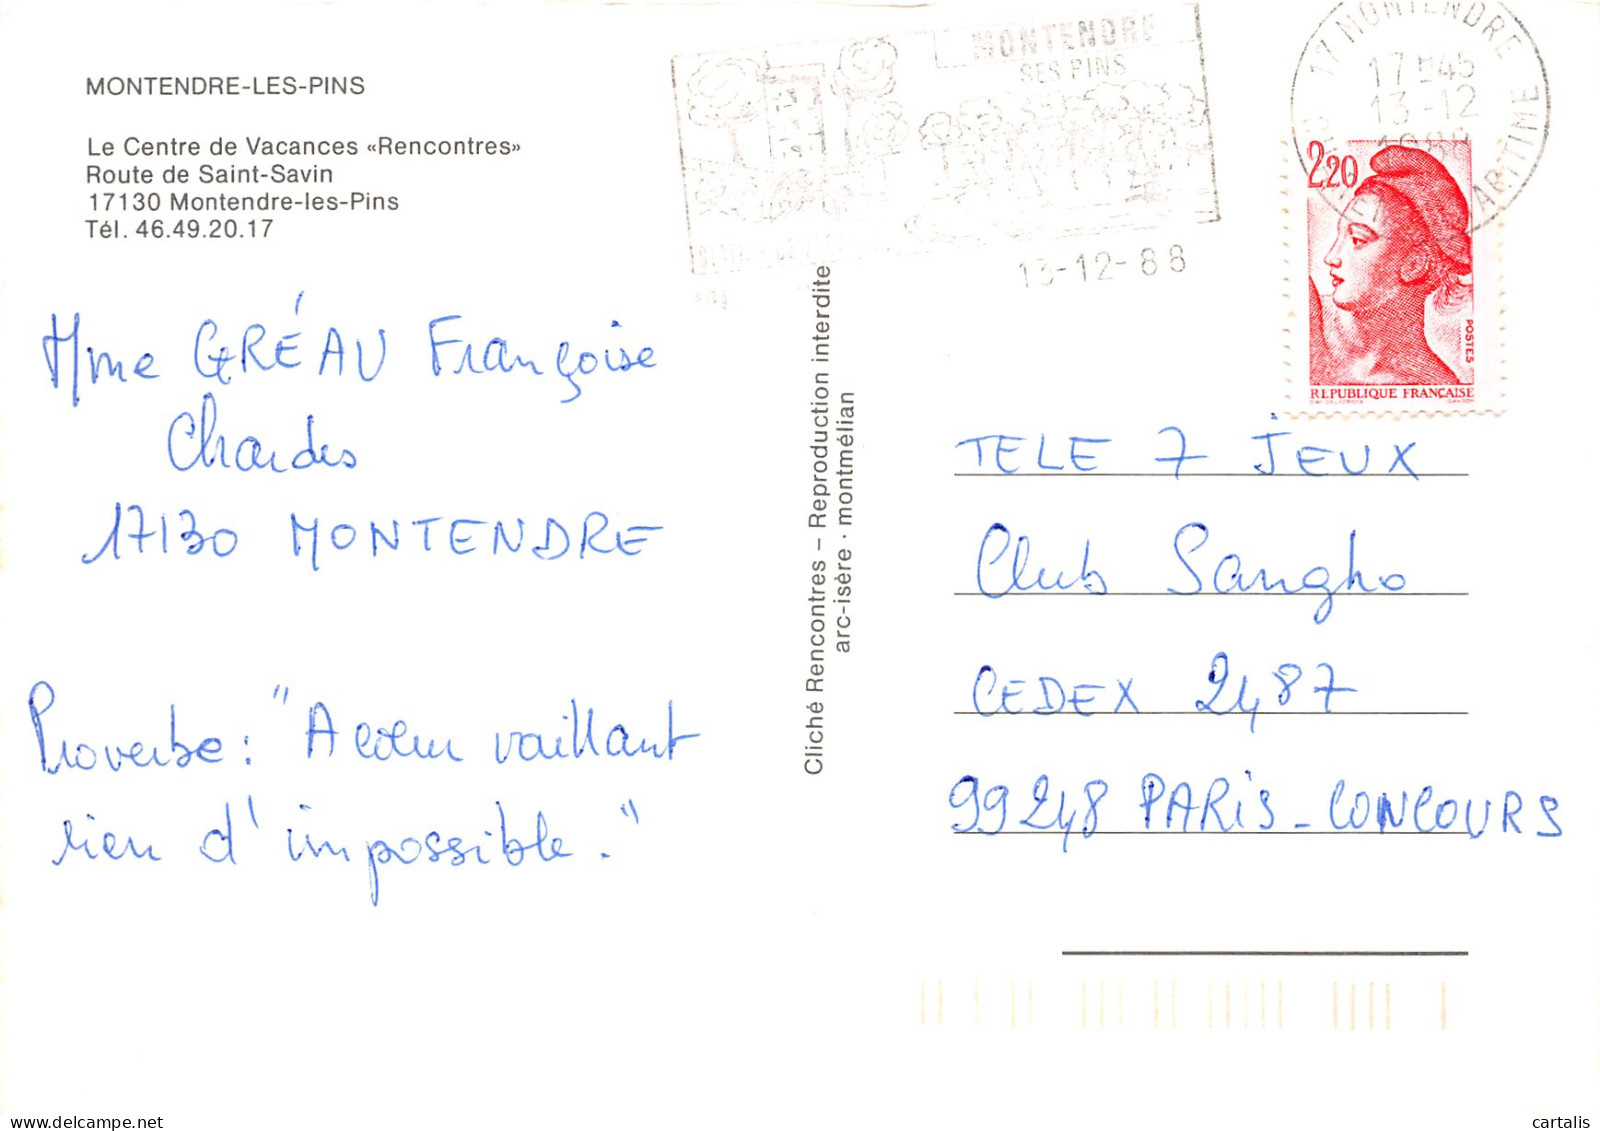 MONTENDRE-LES-PINS
Le Centre de Vacances «Rencontres»
Route de Saint-Savin
17130 Montendre-les-Pins
Tél. 46.49.20.17
Mme GRÉAU Françoise
Chardes
17130 MONTENDRE
Proverbe : "A cœur vaillant
rien d'impossible."
Cliché Rencontres – Reproduction interdite
arc-isère · montmélian
MONTENDRE
SES PINS
13-12-88
17 MONTENDRE
17 H45
13-12
1988
MARITIME
2,20
POSTES
REPUBLIQUE FRANÇAISE
TELE 7 JEUX
Club Sangho
CEDEX 2487
99248 PARIS - CONCOURS
cartalis